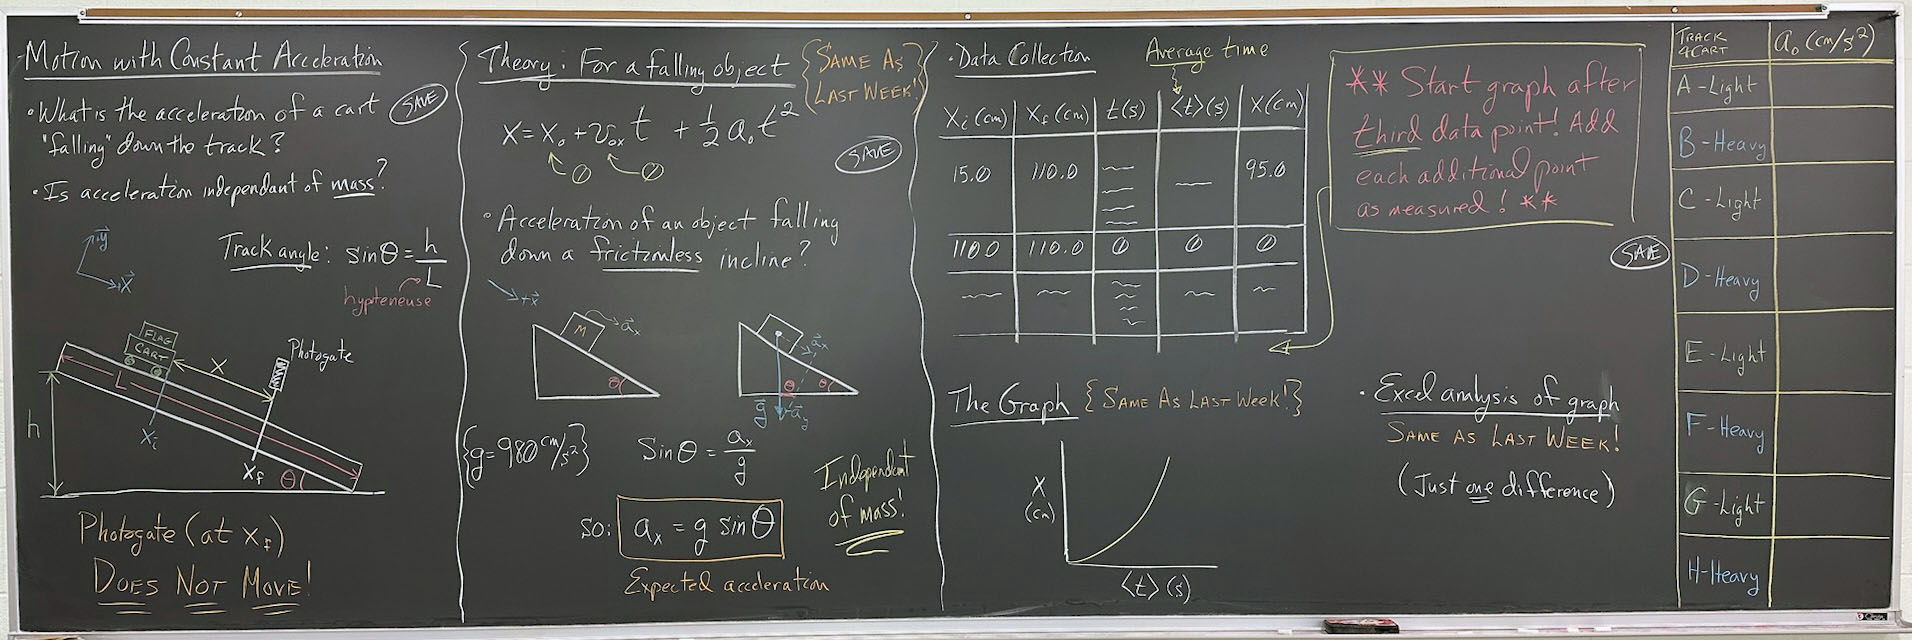 Motion with Constant Acceleration
• What is the acceleration of a cart
"falling" down the track?
SAVE
• Is acceleration independant of mass?
y
+x
Track angle: sinθ = h/L
hypteneuse
FLAG
CART
L
X
Photogate
h
Xi
Xf
θ
Photogate (at Xf)
DOES NOT MOVE!
Theory: For a falling object
{SAME AS
LAST WEEK!}
X = X₀ + v₀ₓ t + ½ a₀ t²
0 0
SAVE
• Acceleration of an object falling
down a frictionless incline?
+x
M
aₓ
θ
aₓ
θ θ
g
a_y
{g = 980 cm/s²}
Sinθ = aₓ/g
so: aₓ = g sinθ
Expected acceleration
Independent
of mass!
• Data Collection
Average time
Xi (cm) Xf (cm) t(s) <t>(s) X(cm)
15.0 110.0 95.0
110.0 110.0 0 0 0
** Start graph after
third data point! Add
each additional point
as measured! **
SAVE
The Graph {SAME AS LAST WEEK!}
X
(cm)
<t> (s)
• Excel analysis of graph
SAME AS LAST WEEK!
(Just one difference)
TRACK
& CART
a₀ (cm/s²)
A - Light
B - Heavy
C - Light
D - Heavy
E - Light
F - Heavy
G - Light
H - Heavy